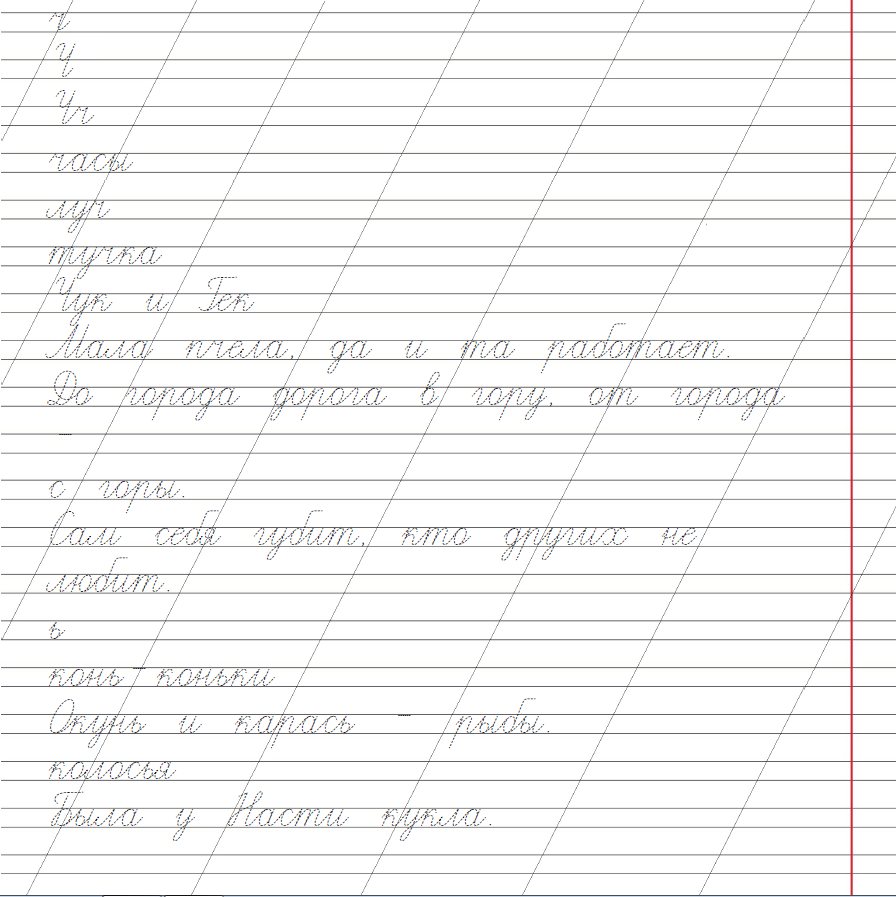 ч
Ч
Чч
часы
луч
тучка
Чук и Гек
Мала пчела, да и та работает.
До города дорога в гору, от города
–
с горы.
Сам себя губит, кто других не
любит.
ь
конь-коньки
Окунь и карась - рыбы.
колосья
Была у Насти кукла.